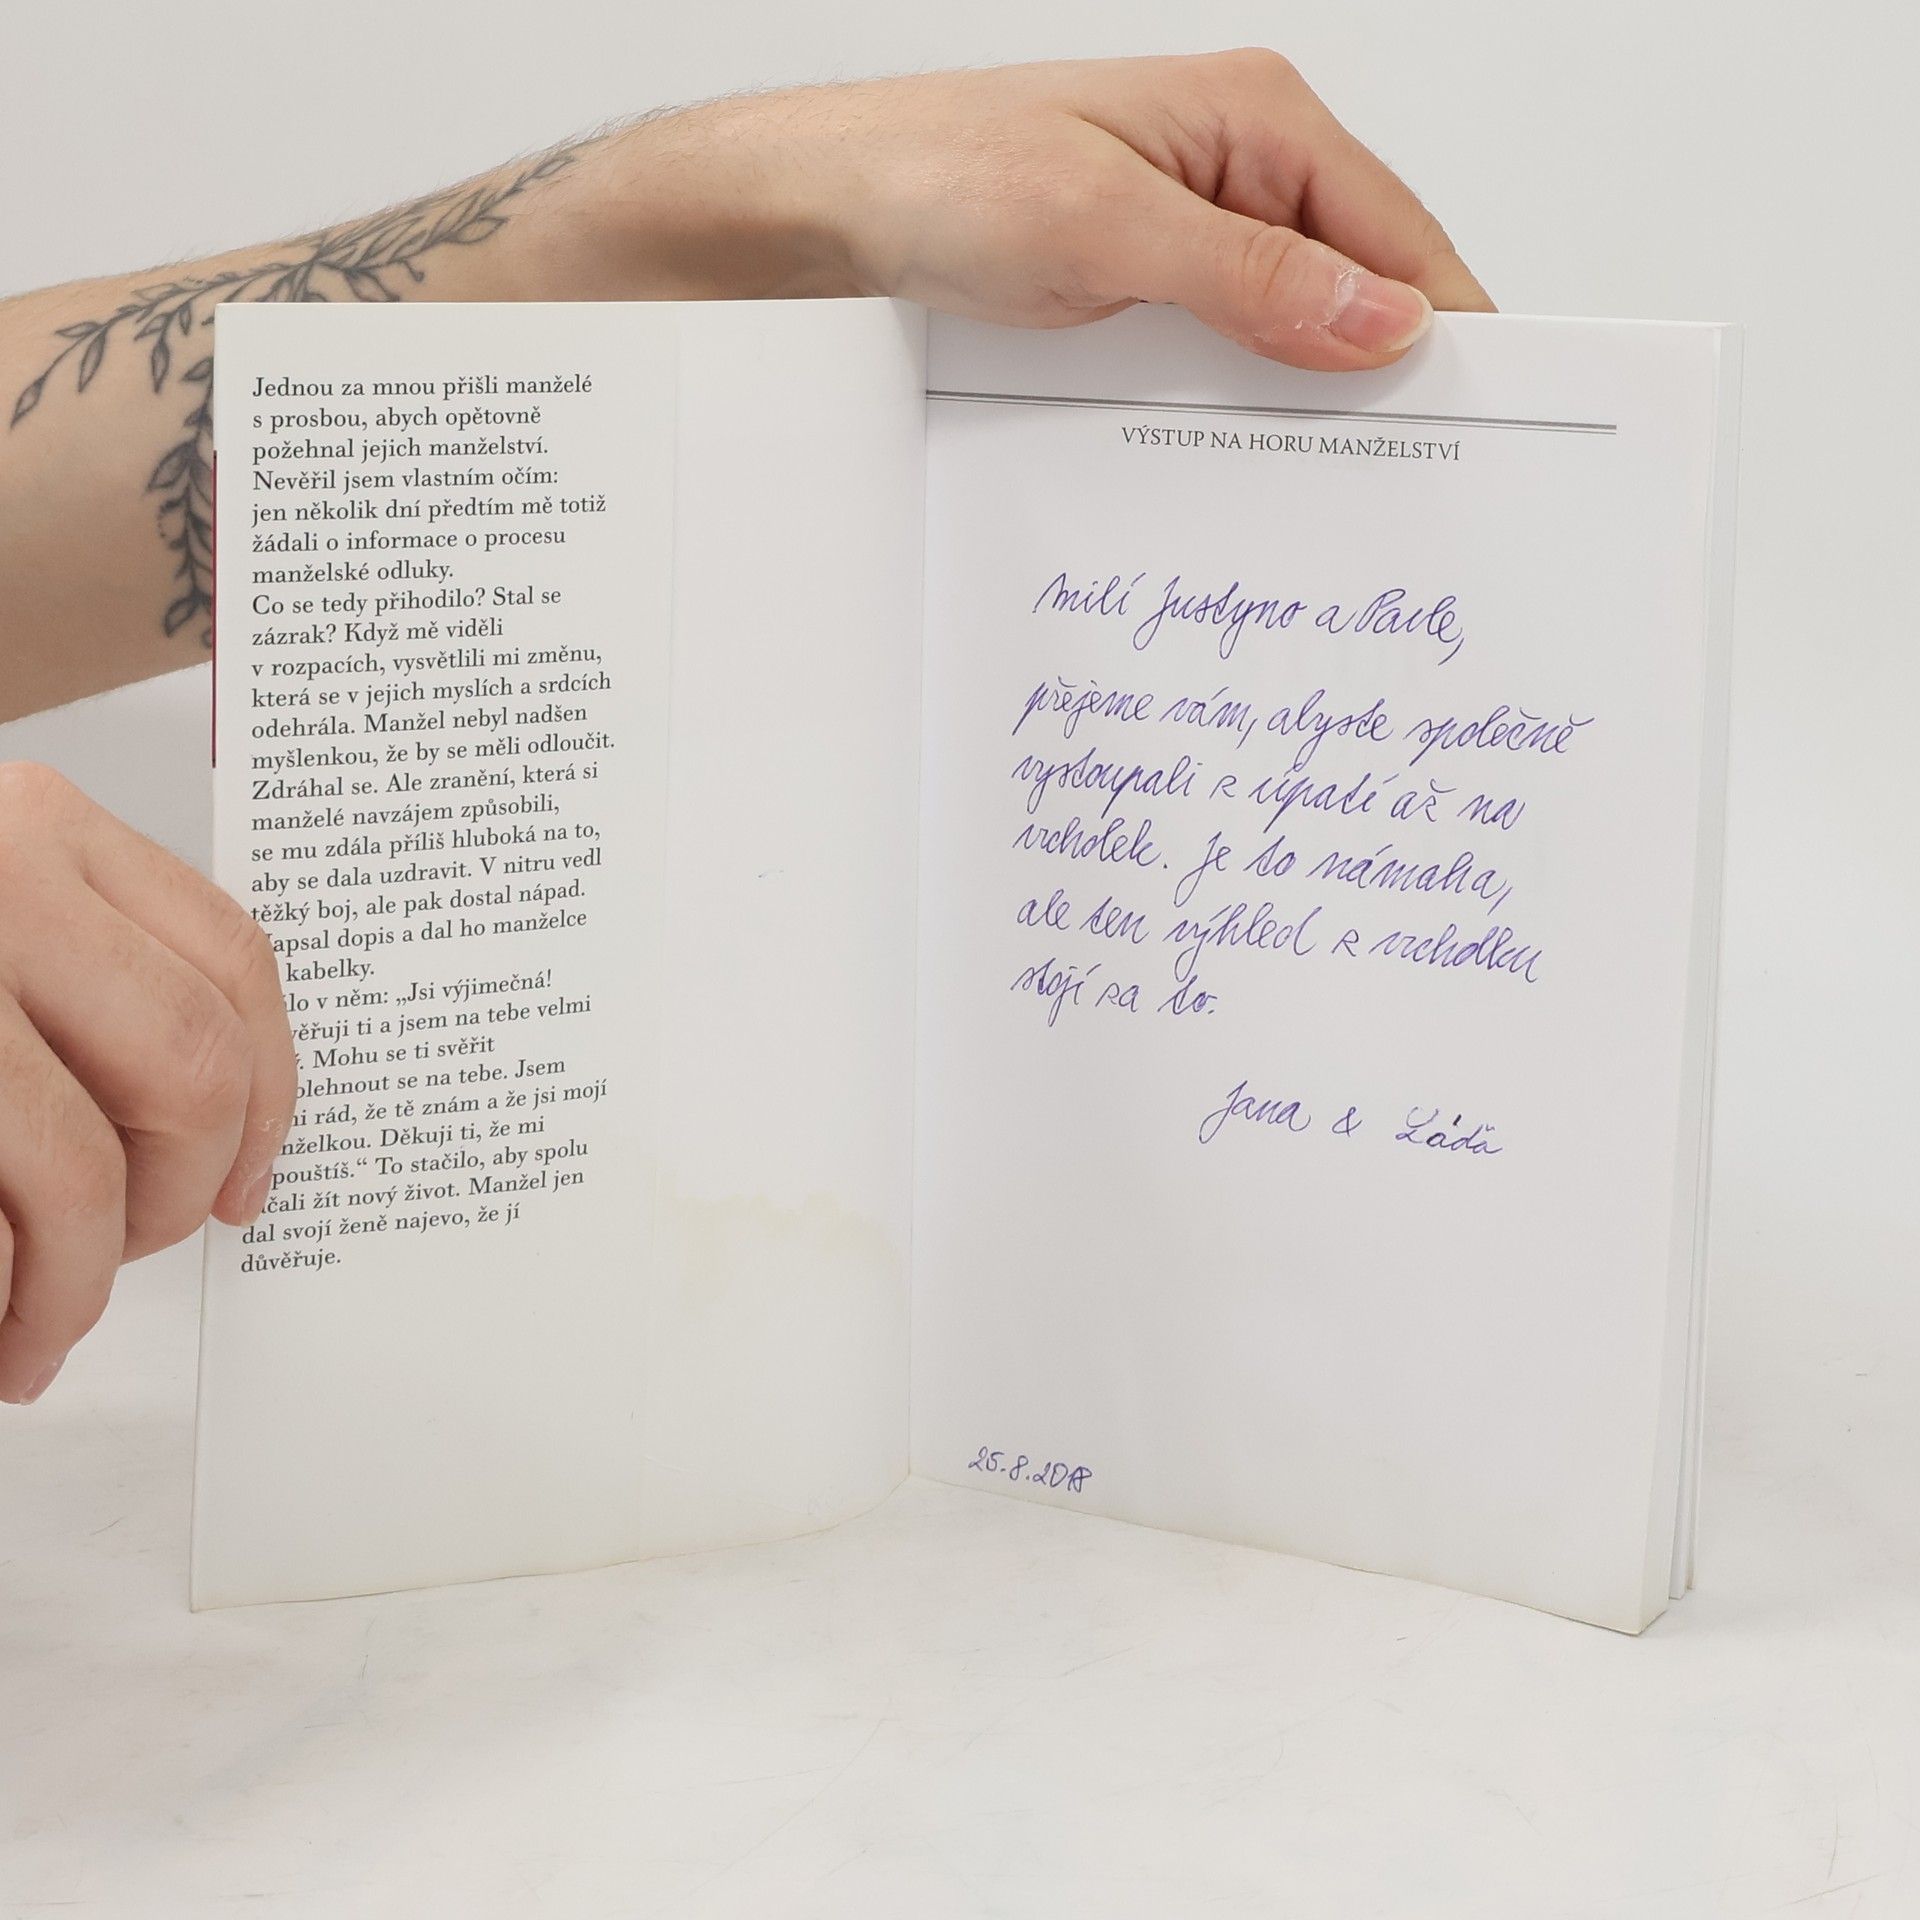 Jednou za mnou přišli manželé
s prosbou, abych opětovně
požehnal jejich manželství.
Nevěřil jsem vlastním očím:
jen několik dní předtím mě totiž
žádali o informace o procesu
manželské odluky.
Co se tedy přihodilo? Stal se
zázrak? Když mě viděli
v rozpacích, vysvětlili mi změnu,
která se v jejich myslích a srdcích
odehrála. Manžel nebyl nadšen
myšlenkou, že by se měli odloučit.
Zdráhal se. Ale zranění, která si
manželé navzájem způsobili,
se mu zdála příliš hluboká na to,
aby se dala uzdravit. V nitru vedl
těžký boj, ale pak dostal nápad.
apsal dopis a dal ho manželce
kabelky.
lo v něm: „Jsi výjimečná!
věřuji ti a jsem na tebe velmi
. Mohu se ti svěřit
olehnout se na tebe. Jsem
mi rád, že tě znám a že jsi mojí
nželkou. Děkuji ti, že mi
pouštíš.“ To stačilo, aby spolu
čali žít nový život. Manžel jen
dal svojí ženě najevo, že jí
důvěřuje.
VÝSTUP NA HORU MANŽELSTVÍ
Milí Justyno a Pavle,
přejeme vám, abyste společně
vystoupali z úpatí až na
vrcholek. Je to námaha,
ale ten výhled z vrcholku
stojí za to.
Jana & Láďa
25.8.2018